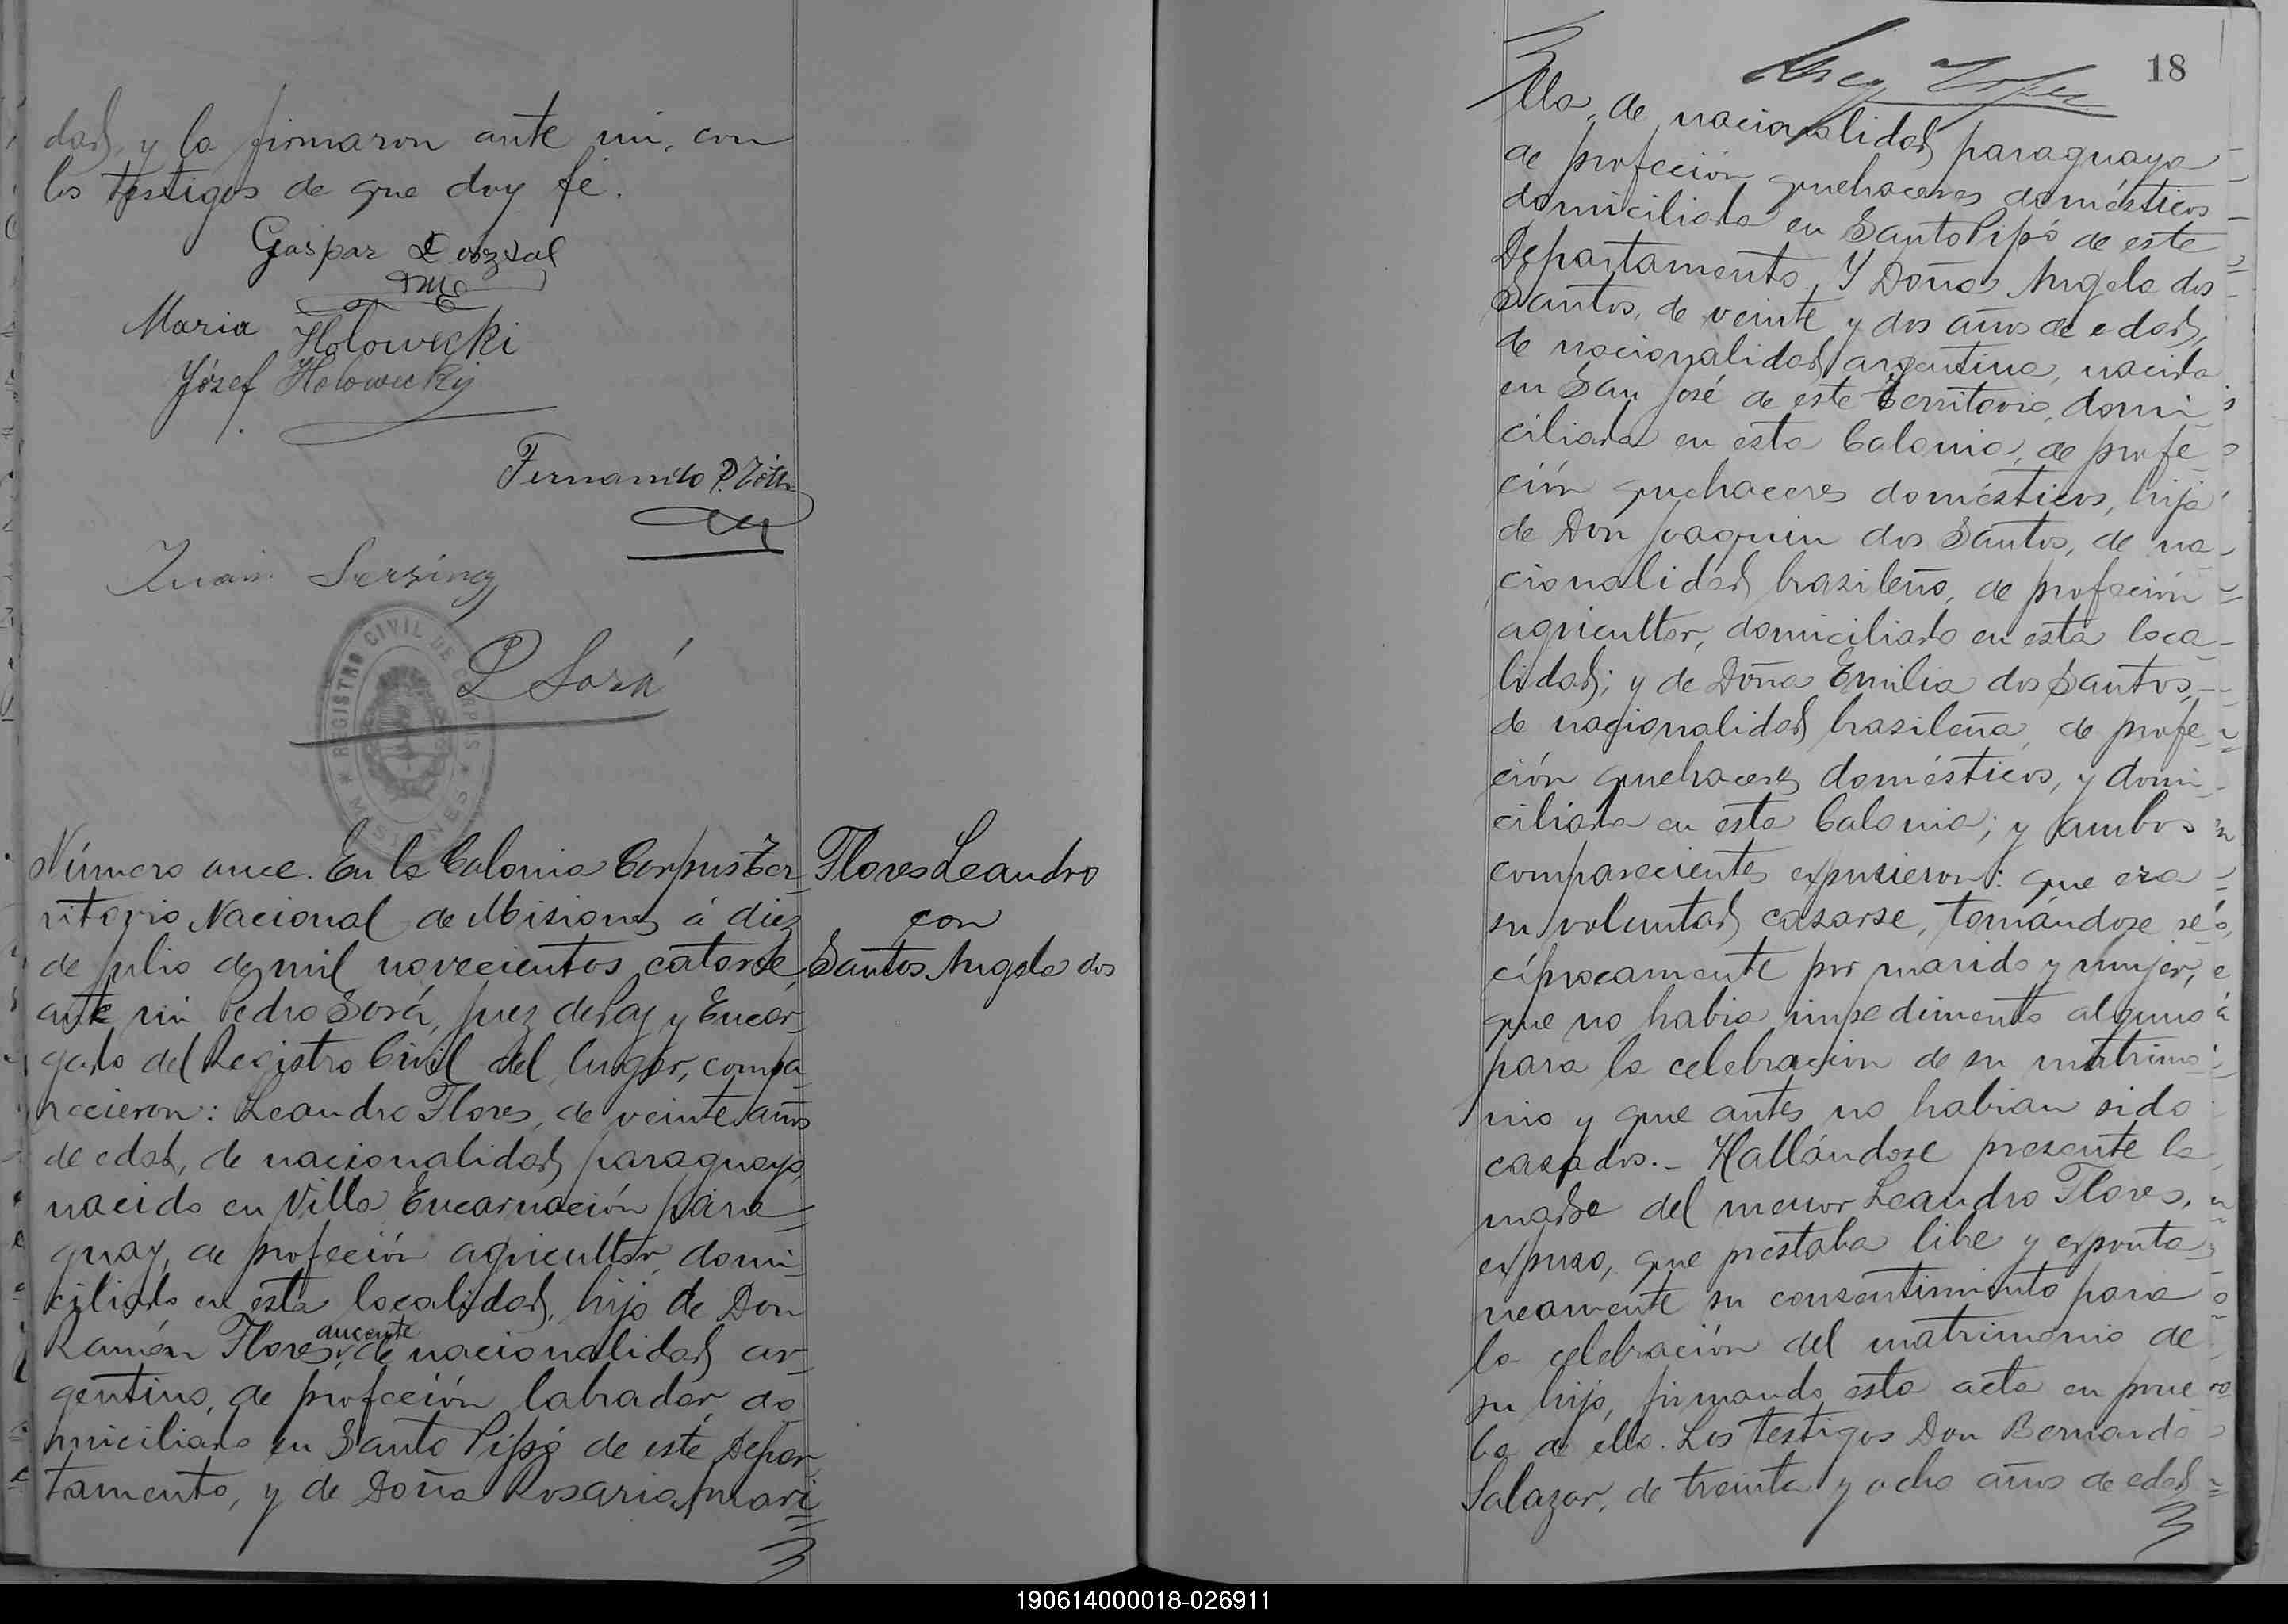 dad, y la firmaron ante mi, con
los testigos de que doy fé.
Gaspar Dorzval
Maria Holowecki
Józef Holowecky
Fernando P.
Juan Sersing
P Sorá
REGISTRO CIVIL DE CORPUS
MISIONES
Número once. En la Colonia Corpus Ter
ritorio Nacional de Misiones á diez
de julio de mil novecientos catorce
ante mi Pedro Sorá, Juez de Paz y Encar
gado del Registro Civil del lugar, compa
recieron: Leandro Flores, de veinte años
de edad, de nacionalidad paraguayo,
nacido en Villa Encarnación Para
guay, de profeción agricultor, domi
ciliado en esta localidad, hijo de Don
Ramón Flores, aucente de nacionalidad ar
gentino, de profeción labrador, do
miciliado en Santo Pipó de este Depar
tamento, y de Doña Rosario Mari
Flores Leandro
con
Santos Angela dos
18
lla, de nacionalidad paraguaya
de profeción quehaceres domésticos
domiciliada en Santo Pipó de este
Departamento. Y Doña Angela dos
Santos, de veinte y dos años de edad,
de nacionalidad argentina, nacida
en San José de este Territorio, domi
ciliada en esta Colonia, de profe
ción quehaceres domésticos, hija
de Don Joaquin dos Santos, de na
cionalidad brasileño, de profeción
agricultor, domiciliado en esta loca
lidad; y de Doña Emilia dos Santos,
de nacionalidad brasileña, de profe
ción quehaceres domésticos, y domi
ciliada en esta Colonia; y ambos
comparecientes expusieron: que era
su voluntad casarse, tomándose re
ciprocamente por marido y mujer,
que no habia impedimento alguno
para la celebracion de su matrimo
nio y que antes no habian sido
casados.- Hallándose presente la
madre del menor Leandro Flores,
expuso, que prestaba libre y esponta
neamente su consentimiento para
la celebración del matrimonio de
su hijo, firmando esta acta en prue
ba de ello. Los testigos Don Bernardo
Salazar, de treinta y ocho años de edad
190614000018-026911